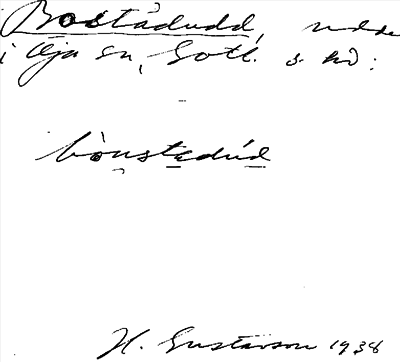 Bostådudd, udde
i Öja sn, Gotl. s hd:
bònstedúd
H. Gustavson 1938